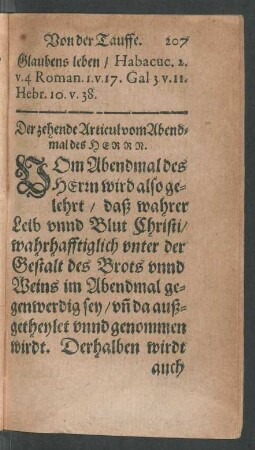 Von der Tauffe. 207
Glaubens leben / Habacuc. 2.
v.4 Roman. 1. v. 17. Gal 3 v. 11.
Hebr. 10. v. 38.
Der zehende Articul vom Abend-
mal des HERRN.
VOm Abendmal des
HErrn wird also ge-
lehrt / daß wahrer
Leib vnnd Blut Christi/
wahrhafftiglich vnter der
Gestalt des Brots vnnd
Weins im Abendmal ge-
genwerdig sey / vñ da auß-
getheylet vnnd genommen
wirdt. Derhalben wirdt
auch